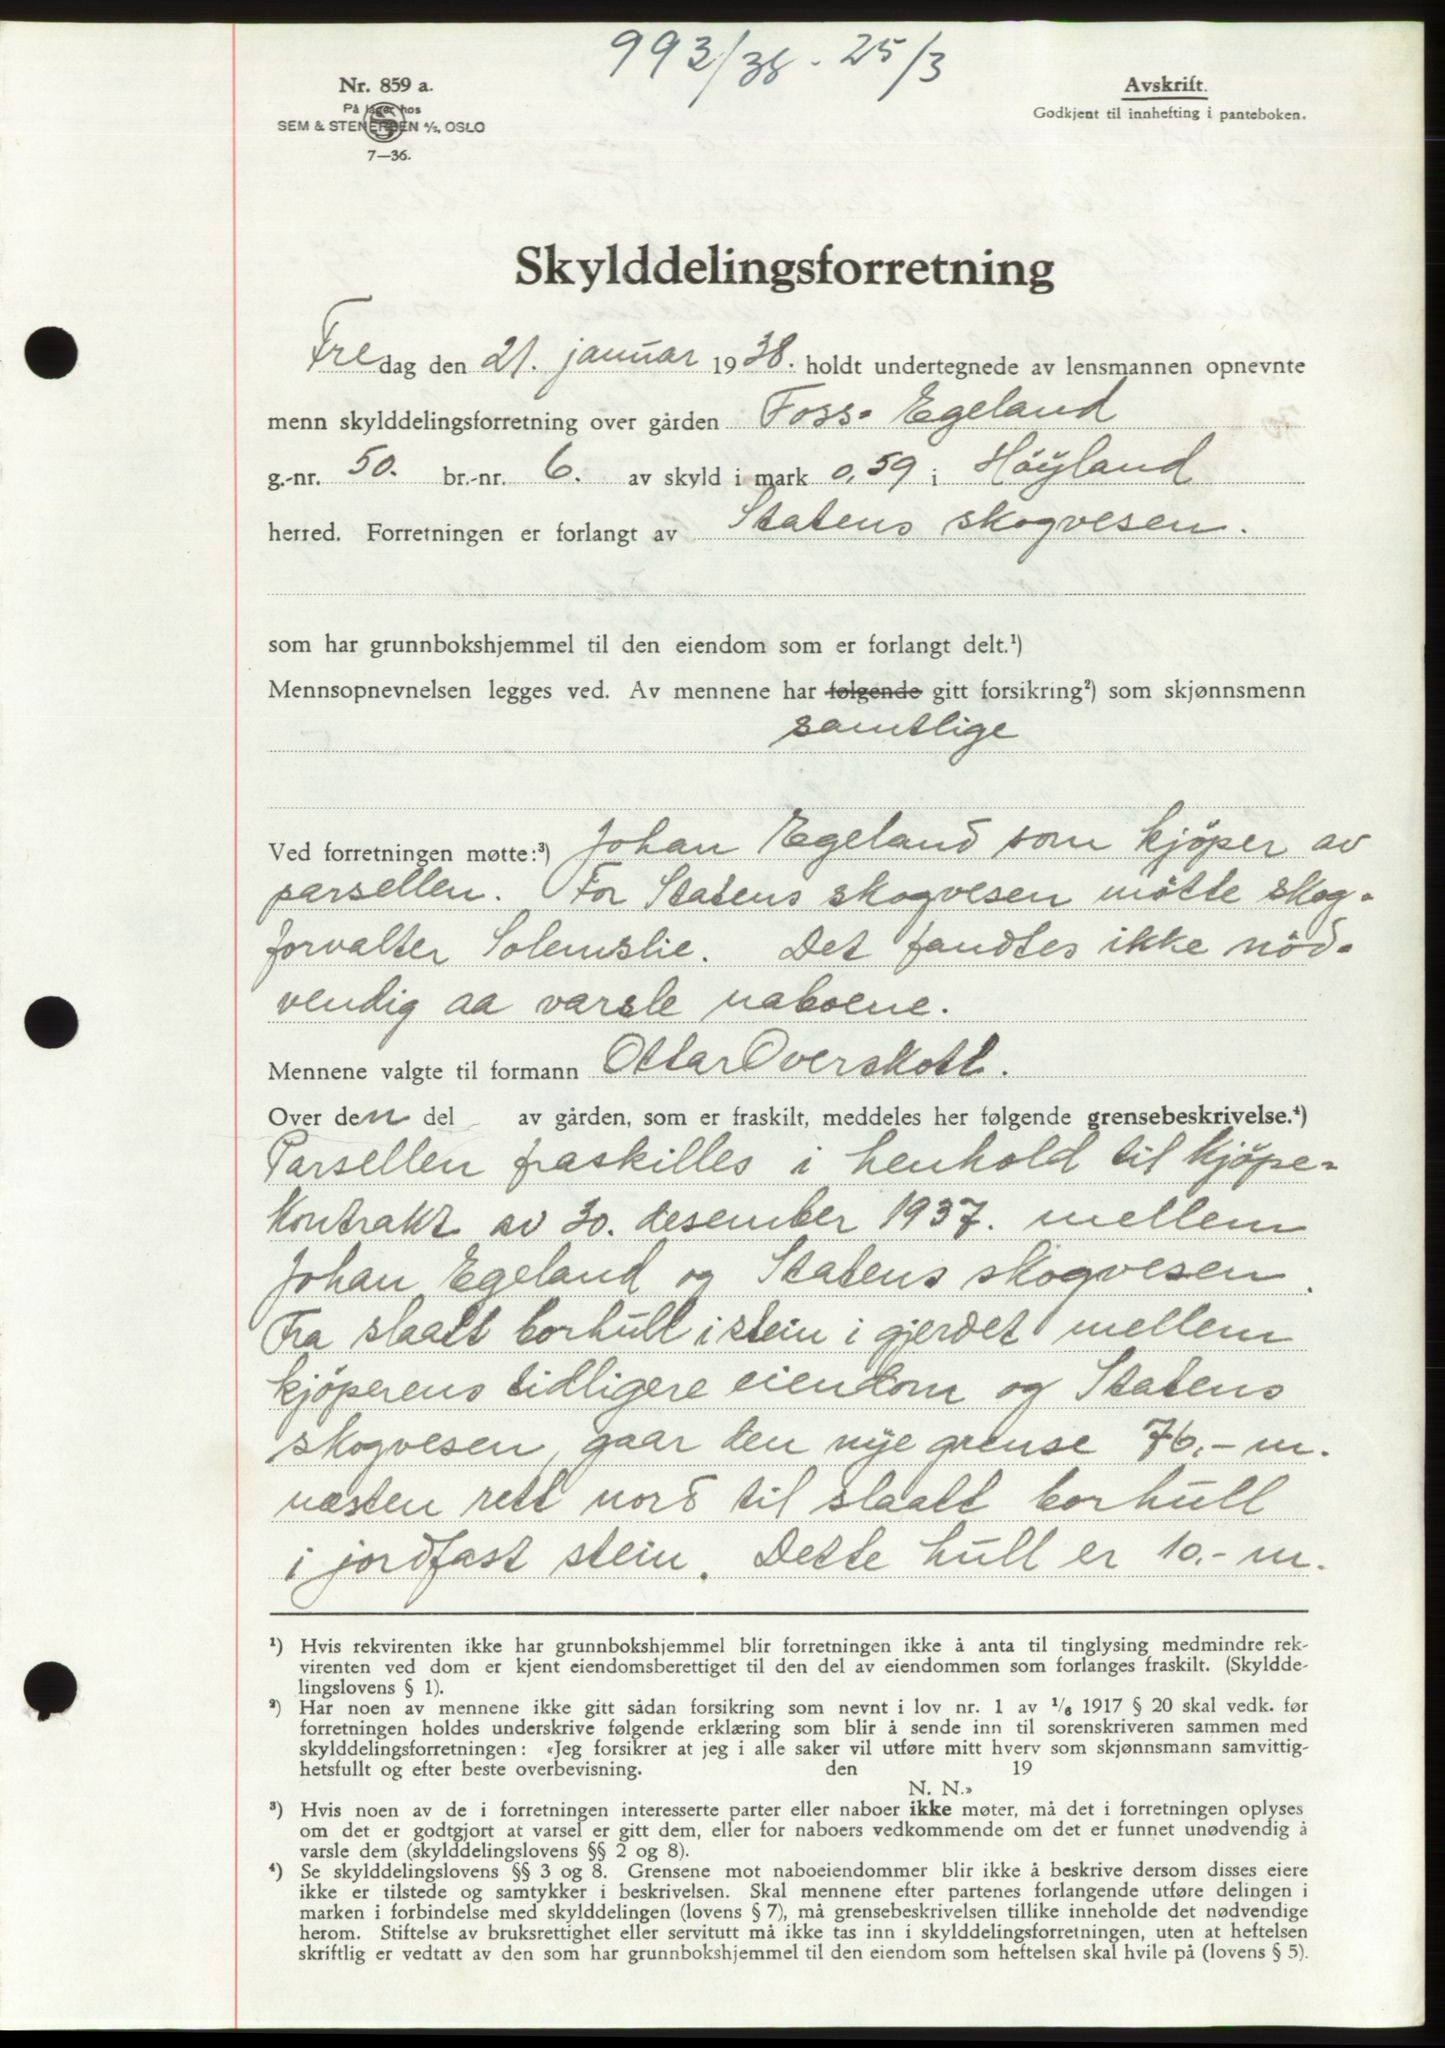 993/38 - 25/3
Nr. 859 a.
På lager hos
SEM & STENERSEN A/S, OSLO
7—36.
Avskrift.
Godkjent til innhefting i panteboken.
Skylddelingsforretning
Fredag den 21. januar 1938. holdt undertegnede av lensmannen opnevnte
menn skylddelingsforretning over gården Foss-Egeland
g.-nr. 50. br.-nr. 6. av skyld i mark 0,59 i Höyland
herred. Forretningen er forlangt av Statens skogvesen.
som har grunnbokshjemmel til den eiendom som er forlangt delt.¹)
Mennsopnevnelsen legges ved. Av mennene har følgende gitt forsikring²) som skjønnsmenn
samtlige
Ved forretningen møtte:³) Johan Egeland som kjöper av
parsellen. For Statens skogvesen mötte skog-
forvalter Solemslie. Det fandtes ikke nöd-
vendig aa varsle naboene.
Mennene valgte til formann Ottar Overskott.
Over den del av gården, som er fraskilt, meddeles her følgende grensebeskrivelse.⁴)
Parsellen fraskilles i henhold til kjöpe-
kontrakt av 30. desember 1937. mellem
Johan Egeland og Statens skogvesen.
Fra slaatt borhull i stein i gjerdet mellem
kjöperens tidligere eiendom og Statens
skogvesen, gaar den nye grense 76,- m.
næsten rett nord til slaatt borhull
i jordfast stein. Dette hull er 10,- m.
¹) Hvis rekvirenten ikke har grunnbokshjemmel blir forretningen ikke å anta til tinglysing medmindre rek-
virenten ved dom er kjent eiendomsberettiget til den del av eiendommen som forlanges fraskilt. (Skyldde-
lingslovens § 1).
²) Har noen av mennene ikke gitt sådan forsikring som nevnt i lov nr. 1 av 1/6 1917 § 20 skal vedk. før
forretningen holdes underskrive følgende erklæring som blir å sende inn til sorenskriveren sammen med
skylddelingsforretningen: «Jeg forsikrer at jeg i alle saker vil utføre mitt hverv som skjønnsmann samvittig-
hetsfullt og efter beste overbevisning. den 19
N. N.»
³) Hvis noen av de i forretningen interesserte parter eller naboer ikke møter, må det i forretningen oplyses
om det er godtgjort at varsel er gitt dem, eller for naboers vedkommende om det er funnet unødvendig å
varsle dem (skylddelingslovens §§ 2 og 8).
⁴) Se skylddelingslovens §§ 3 og 8. Grensene mot naboeiendommer blir ikke å beskrive dersom disses eiere
ikke er tilstede og samtykker i beskrivelsen. Skal mennene efter partenes forlangende utføre delingen i
marken i forbindelse med skylddelingen (lovens § 7), må grensebeskrivelsen tillike inneholde det nødvendige
herom. Stiftelse av bruksrettighet eller servitutt må ikke tas inn i skylddelingsforretningen, uten at heftelsen
skriftlig er vedtatt av den som har grunnbokshjemmel til den eiendom som heftelsen skal hvile på (lovens § 5).